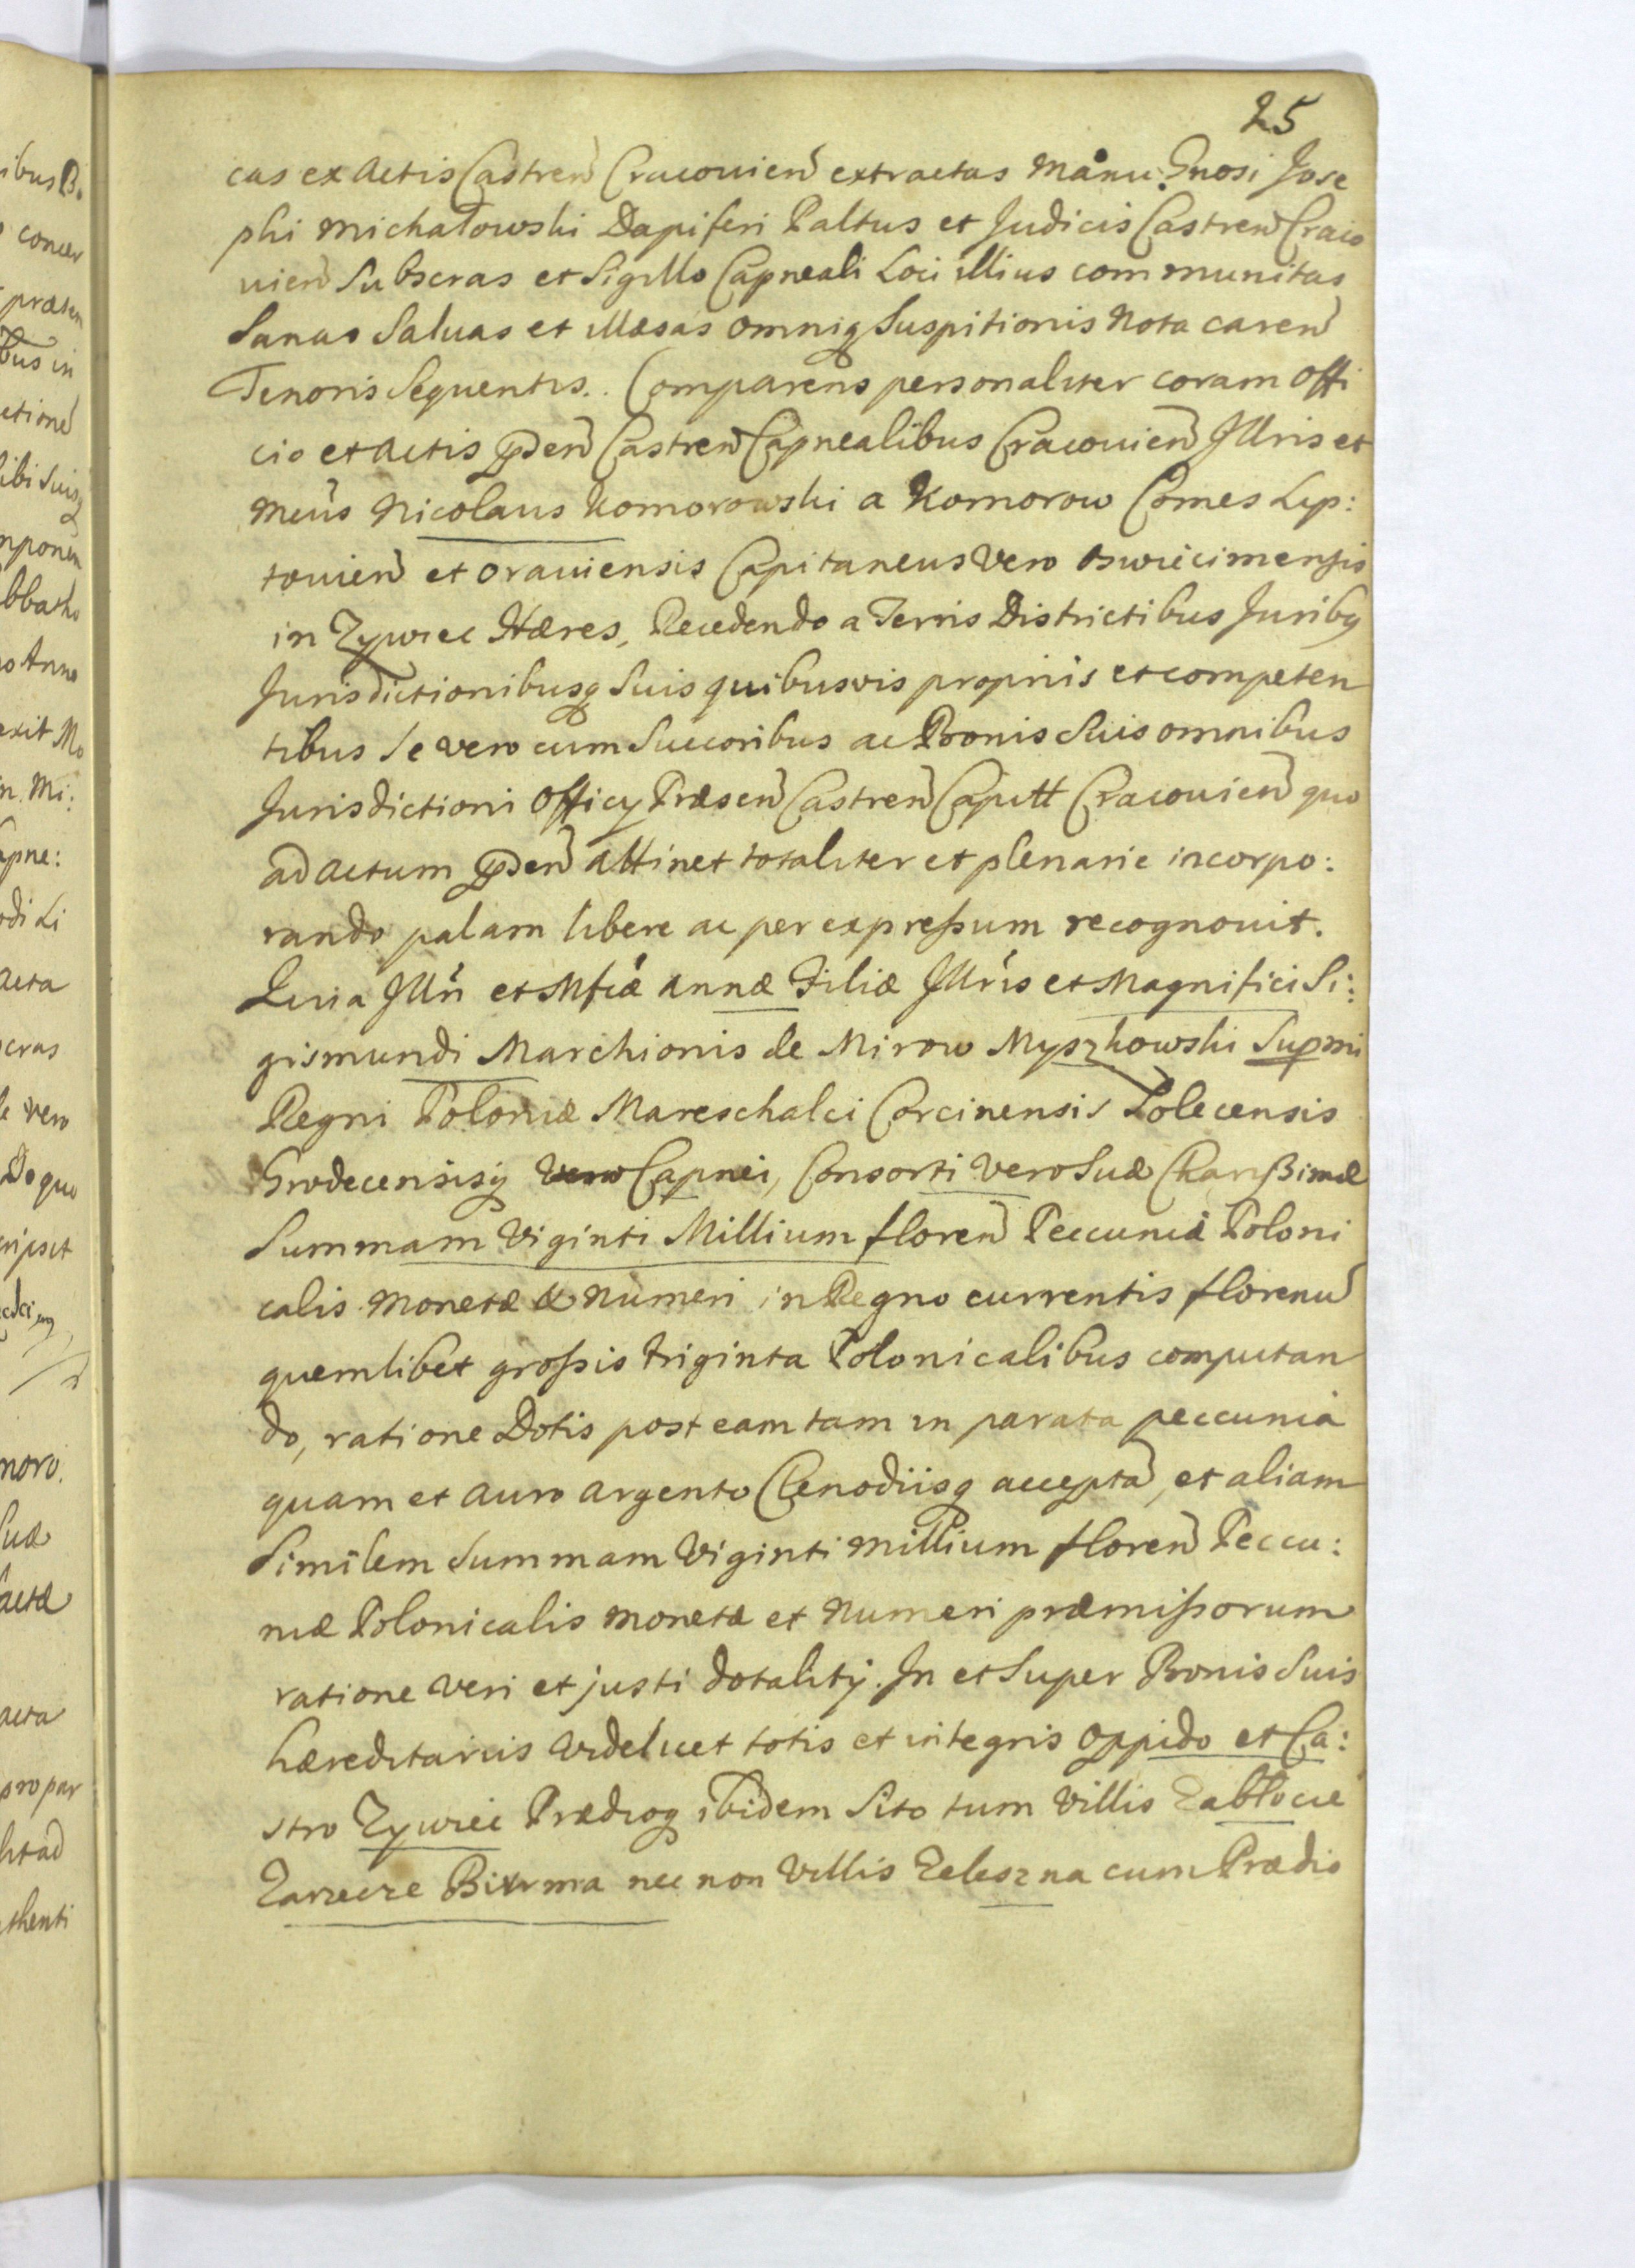 25
cas ex Actis Castren Cracouien extractas Manu Gnosi Jose
phi Michałowski Dapiferi Paltus et Judicis Castren Craco
uien Subscras et Sigillo Capneali Loci illius communitas
Sanas Saluas et illæsas omniq Suspitionis Nota caren
Tenoris Sequentis.. Comparens personaliter coram Offi
cio et Actis pden Castren Capnealibus Cracouien Jllris et
Mcus Nicolaus Komorowski a Komorow Comes Lip:
touien et Orauiensis Capitaneus Vero Oswiecimensis
in Zywiec Hæres, Recedendo a Terris Districtibus Juribq
Jurisdictionibusq Suis quibusvis proprijs et competen
tibus Se vero cum Succoribus ac Bonis Suis omnibus
Jurisdictioni Officij Præsen Castren Capitt Cracouien quo
ad actum pden attinet totaliter et plenarie incorpo:
rando palam libere ac per expressum recognouit.
Quia Jllri et Mficæ Annæ Filiæ Jllris et Magnifici Si:
gismundi Marchionis de Mirow Myszkowski Supmi
Regni Poloniæ Mareschalci Corcinensis Solecensis
Grodecensisq Vero Capnei, Consorti vero Suæ Charissimæ
Summam Viginti Millium floren Peccuniæ Poloni
calis Monetæ & Numeri in Regno currentis florenu
quemlibet grossis triginta Polonicalibus computan
do, ratione Dotis post eam tam in parata peccunia
quam et auro argento Clenodiisq accepta, et aliam
Similem Summam Viginti Millium floren Peccu:
niæ Polonicalis Monetæ et Numeri præmissorum
ratione veri et justi dotalitij. Jn et Super Bonis Suis
hæreditariis videlicet totis et integris Oppido et Ca:
stro Zywiec Prædioq ibidem Sito tum Villis Zabłocie
Zarzecze nec non Villis Zeleszna cum Prædio